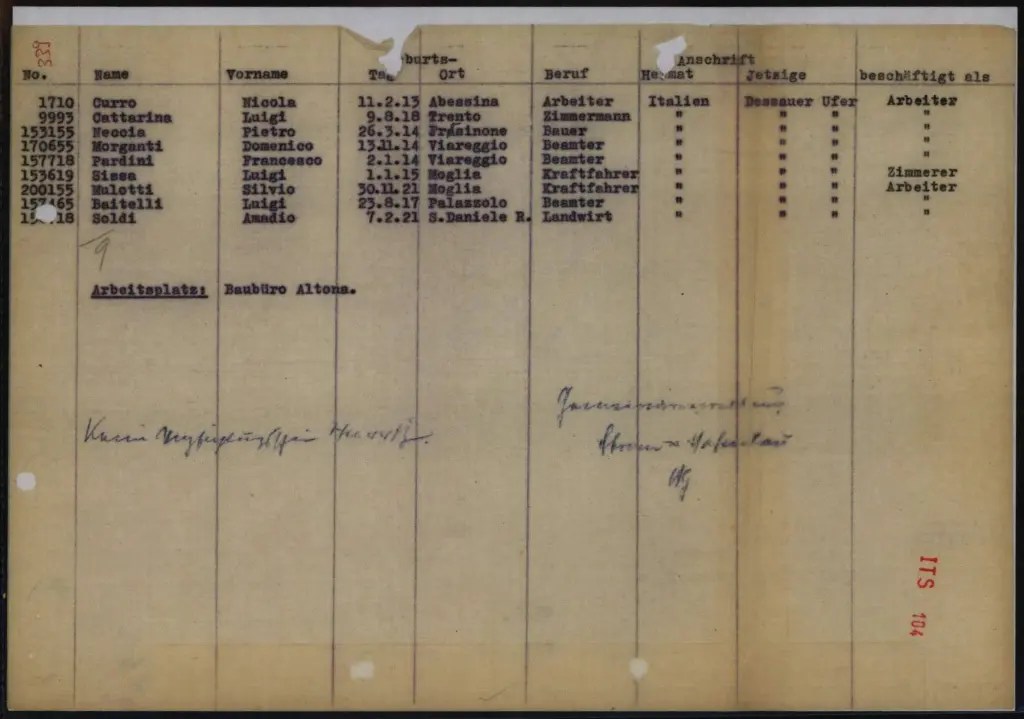 339
burts- Anschrift
No. Name Vorname Tag Ort Beruf Heimat Jetzige beschäftigt als
1710 Curro Nicola 11.2.13 Abessina Arbeiter Italien Dessauer Ufer Arbeiter
9993 Cattarina Luigi 9.8.18 Trento Zimmermann " " " "
153155 Neccia Pietro 26.3.14 Frasinone Bauer " " " "
170655 Morganti Domenico 13.11.14 Viareggio Beamter " " " "
157718 Pardini Francesco 2.1.14 Viareggio Beamter " " " "
153619 Sissa Luigi 1.1.15 Moglia Kraftfahrer " " " Zimmerer
200155 Mulotti Silvio 30.11.21 Moglia Kraftfahrer " " " Arbeiter
465 Baitelli Luigi 23.8.17 Palazzolo Beamter " " " "
18 Soldi Amadio 7.2.21 S.Daniele R. Landwirt " " " "
9
Arbeitsplatz: Baubüro Altona.
Strom- u. Hafenbau
ITS 104